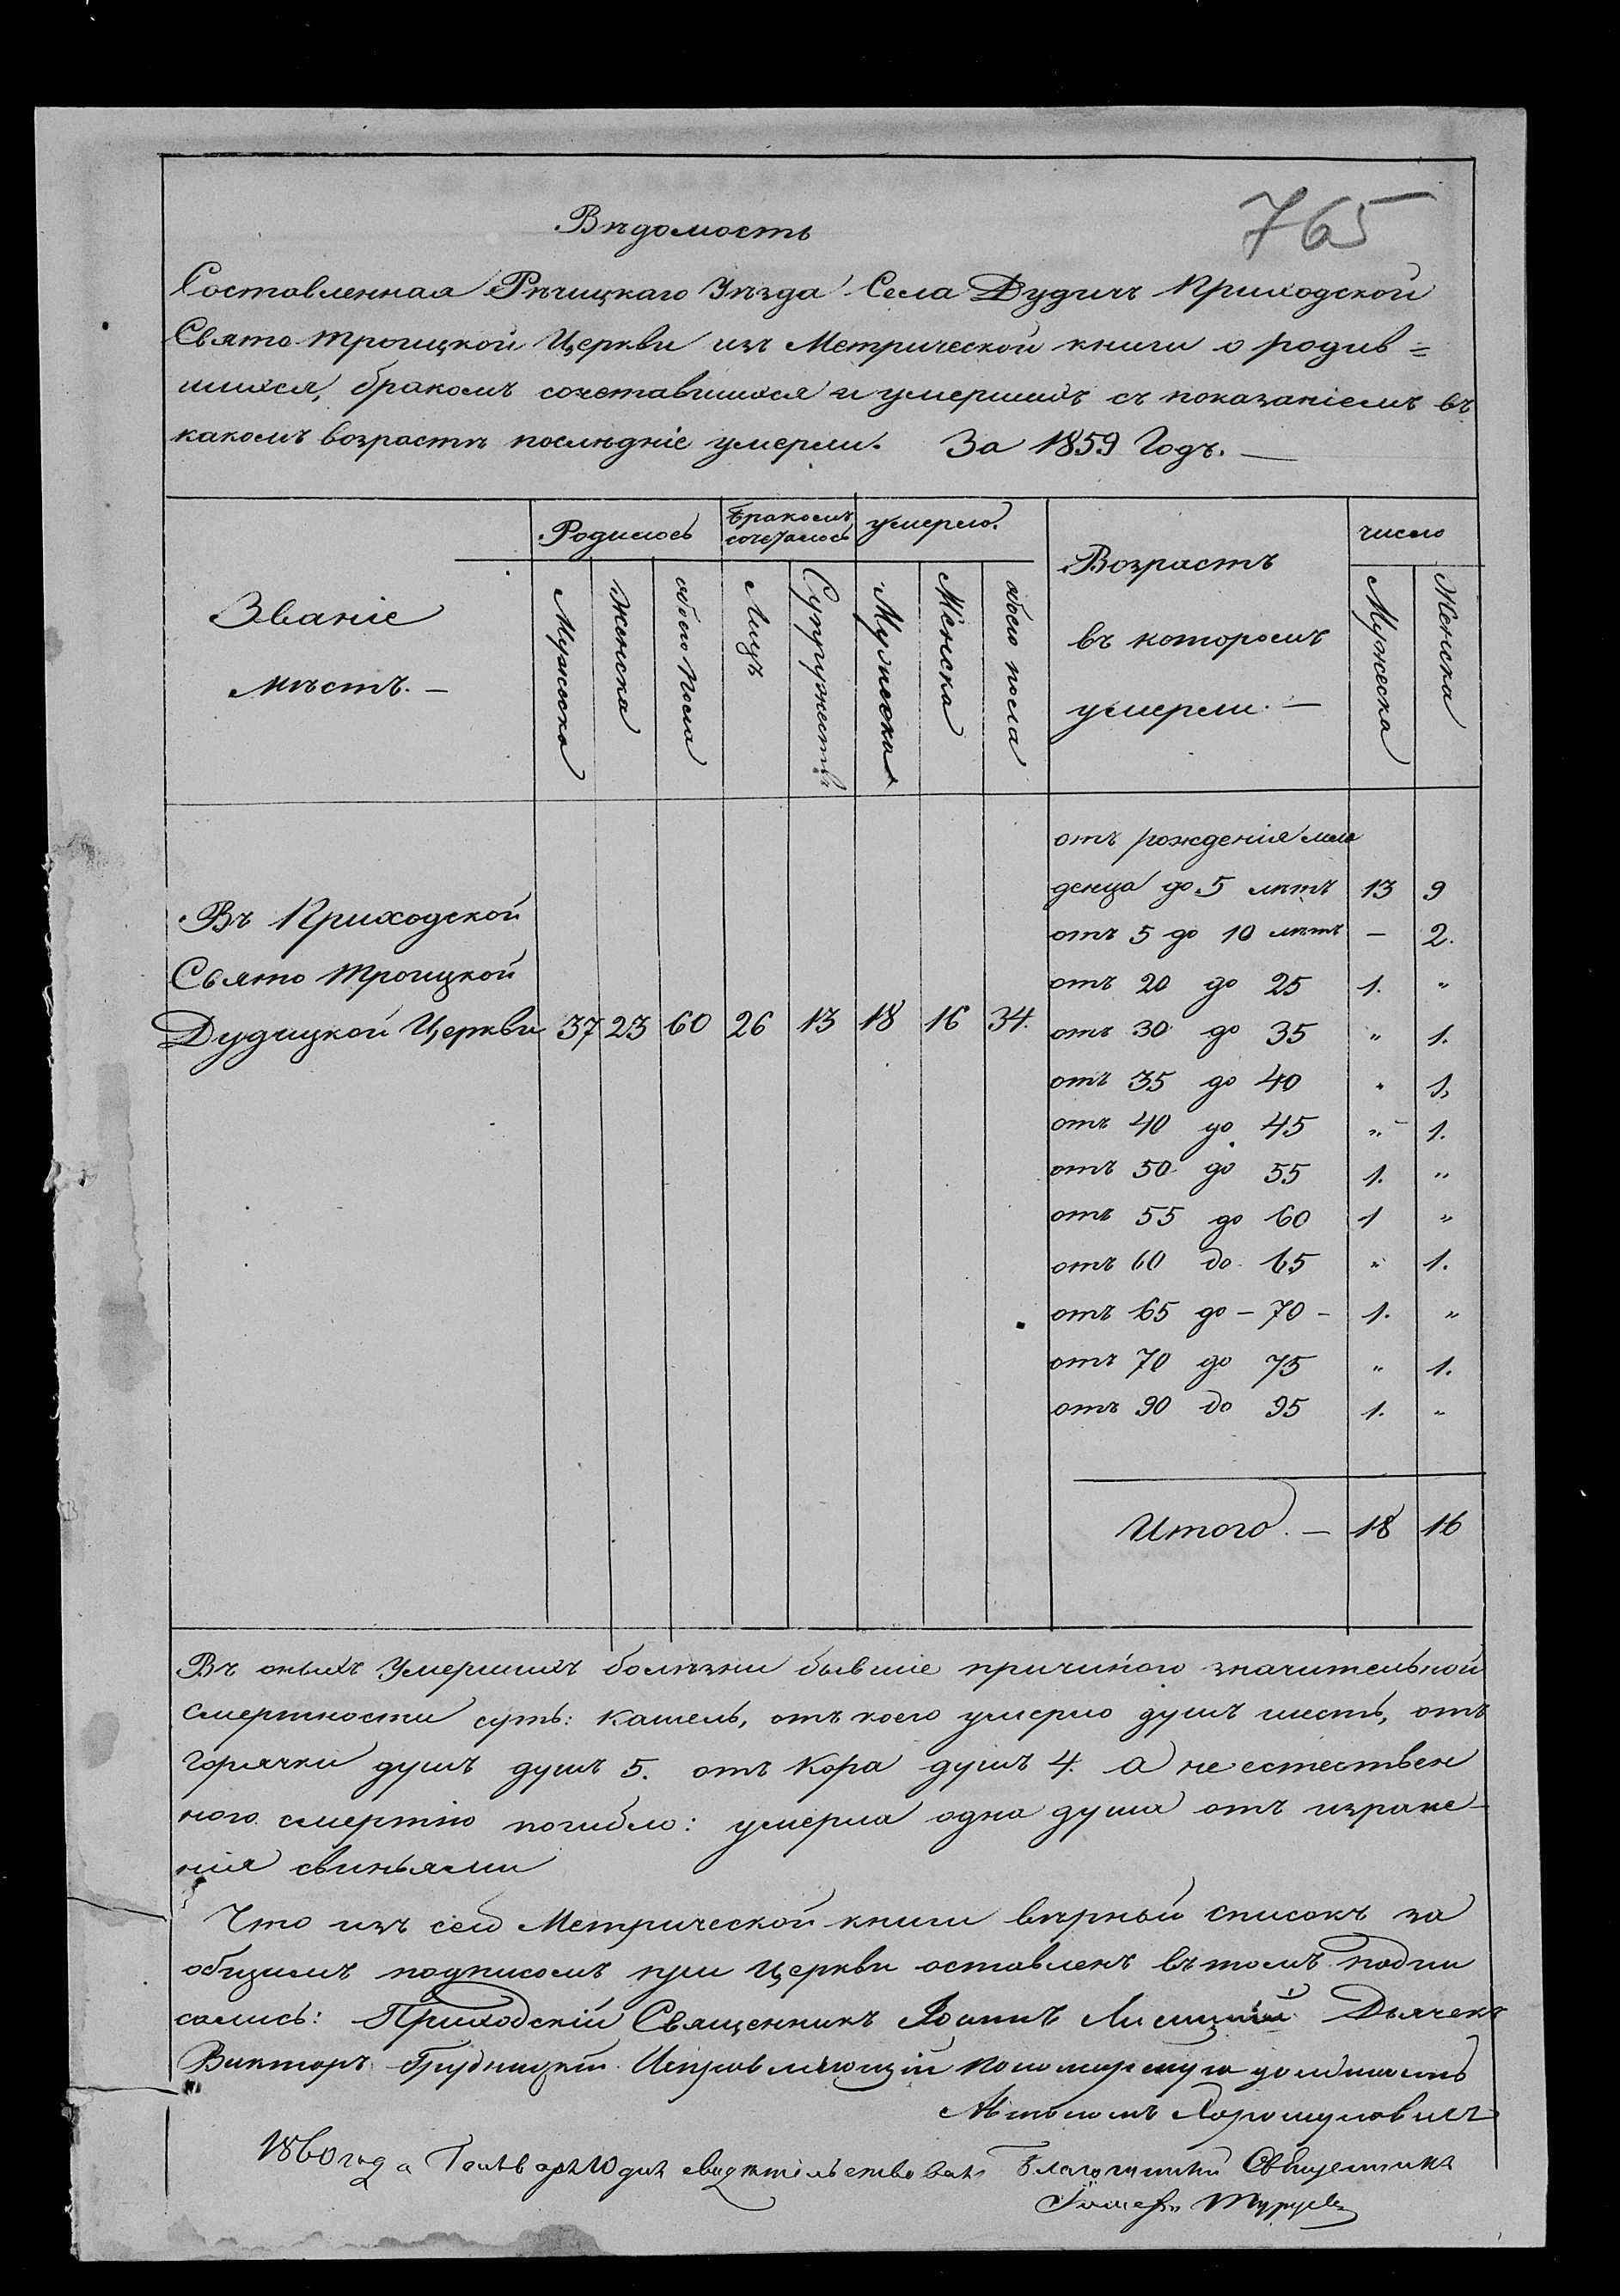 765
Вѣдомость
Составленная Рѣчицкаго Уѣзда Села Дудичъ Приходской
Свято Троицкой Церкви изъ Метрической книги о родив=
шихся, бракомъ сочетавшихся и умершихъ съ показаніемъ въ
какомъ возрастѣ послѣдніе умерли. За 1859 Годъ. —
Званіе мѣстъ. —
Родилось
Бракомъ сочеталось
умерло.
Возрастъ въ которомъ умерли. —
число
Мужеска
Женска
обоего Пола
Лицъ
Супружествъ
Мужеска
Женска
обоего пола
Мужеска
Женска
Въ Приходской
Свято Троицкой
Дудицкой Церкви 37 23 60 26 13 18 16 34.
отъ рожденія мла
денца до 5 лѣтъ 13 9
отъ 5 до 10 лѣтъ — 2.
отъ 20 до 25 1. "
отъ 30 до 35 " 1.
отъ 35 до 40 " 1.
отъ 40 до 45 " 1.
отъ 50 до 55 1. "
отъ 55 до 60 1 "
отъ 60 до 65 " 1.
отъ 65 до — 70 — 1. "
отъ 70 до 75 " 1.
отъ 90 до 95 1. "
Итого. — 18 16
Въ оныхъ Умершихъ болѣзни бывшіе причиною значительной
смертности суть: кашель, отъ коего умерло душъ шесть, отъ
горячки душъ душъ 5. отъ Кора душъ 4. а не естествен
ною смертію погибло: умерла одна душа отъ изране-
нія свиньями
Что изъ сей Метрической книги вѣрный списокъ за
общимъ подписомъ при Церкви оставленъ въ томъ подпи
сались: Приходскій Священникъ Іоаннъ Дьячекъ
Викторъ Исправляющій Пономарскую должность
1860 года Генваря 10 дня свидѣтельствовалъ Благочинный Священникъ